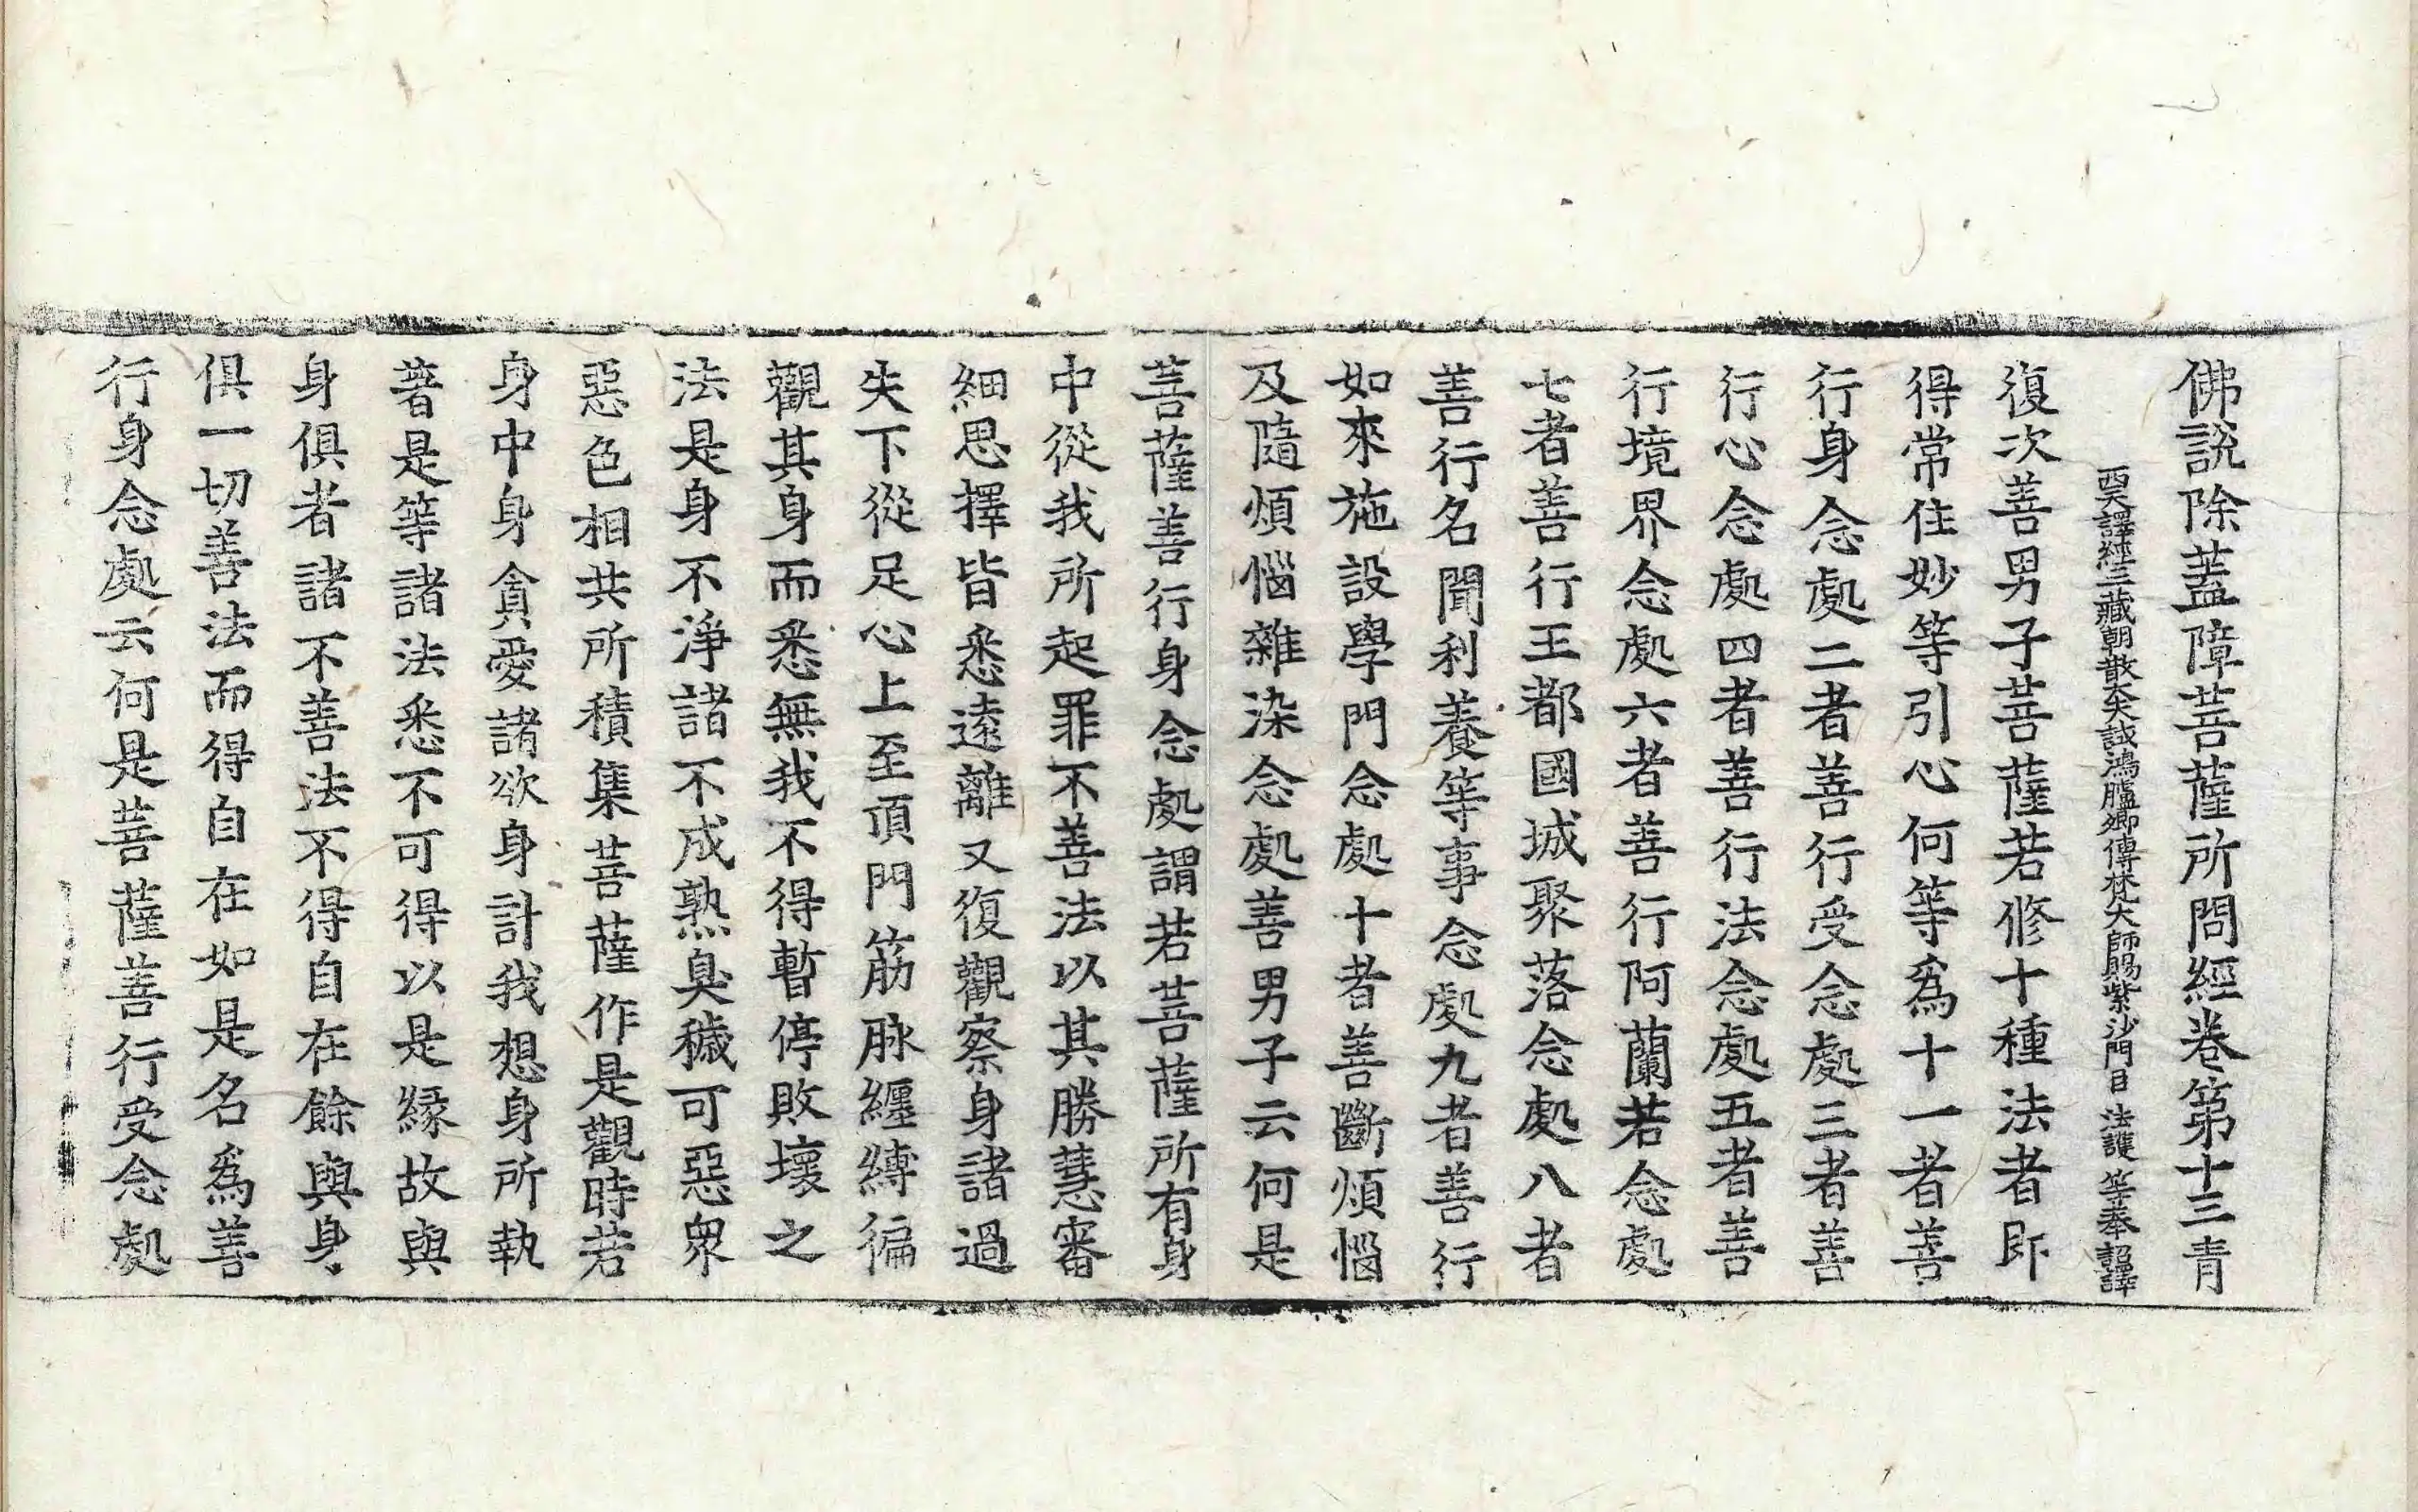 佛說除蓋障菩薩所問經卷第十三青
西天譯經三藏朝散大夫試鴻臚卿傳梵大師賜紫沙門臣法護等奉詔譯
復次善男子菩薩若修十種法者即
得常住妙等引心何等爲十一者善
行身念處二者善行受念處三者善
行心念處四者善行法念處五者善
行境界念處六者善行阿蘭若念處
七者善行王都國城聚落念處八者
善行名聞利養等事念處九者善行
如來施設學門念處十者善斷煩惱
及隨煩惱雜染念處善男子云何是
菩薩善行身念處謂若菩薩所有身
中從我所起罪不善法以其勝慧審
細思擇皆悉遠離又復觀察身諸過
失下從足心上至頂門筋脉纏縛徧
觀其身而悉無我不得暫停敗壞之
法是身不淨諸不成熟臭穢可惡衆
惡色相共所積集菩薩作是觀時若
身中身貪愛諸欲身計我想身所執
著是等諸法悉不可得以是緣故與
身俱者諸不善法不得自在餘與身
俱一切善法而得自在如是名爲善
行身念處云何是菩薩善行受念處